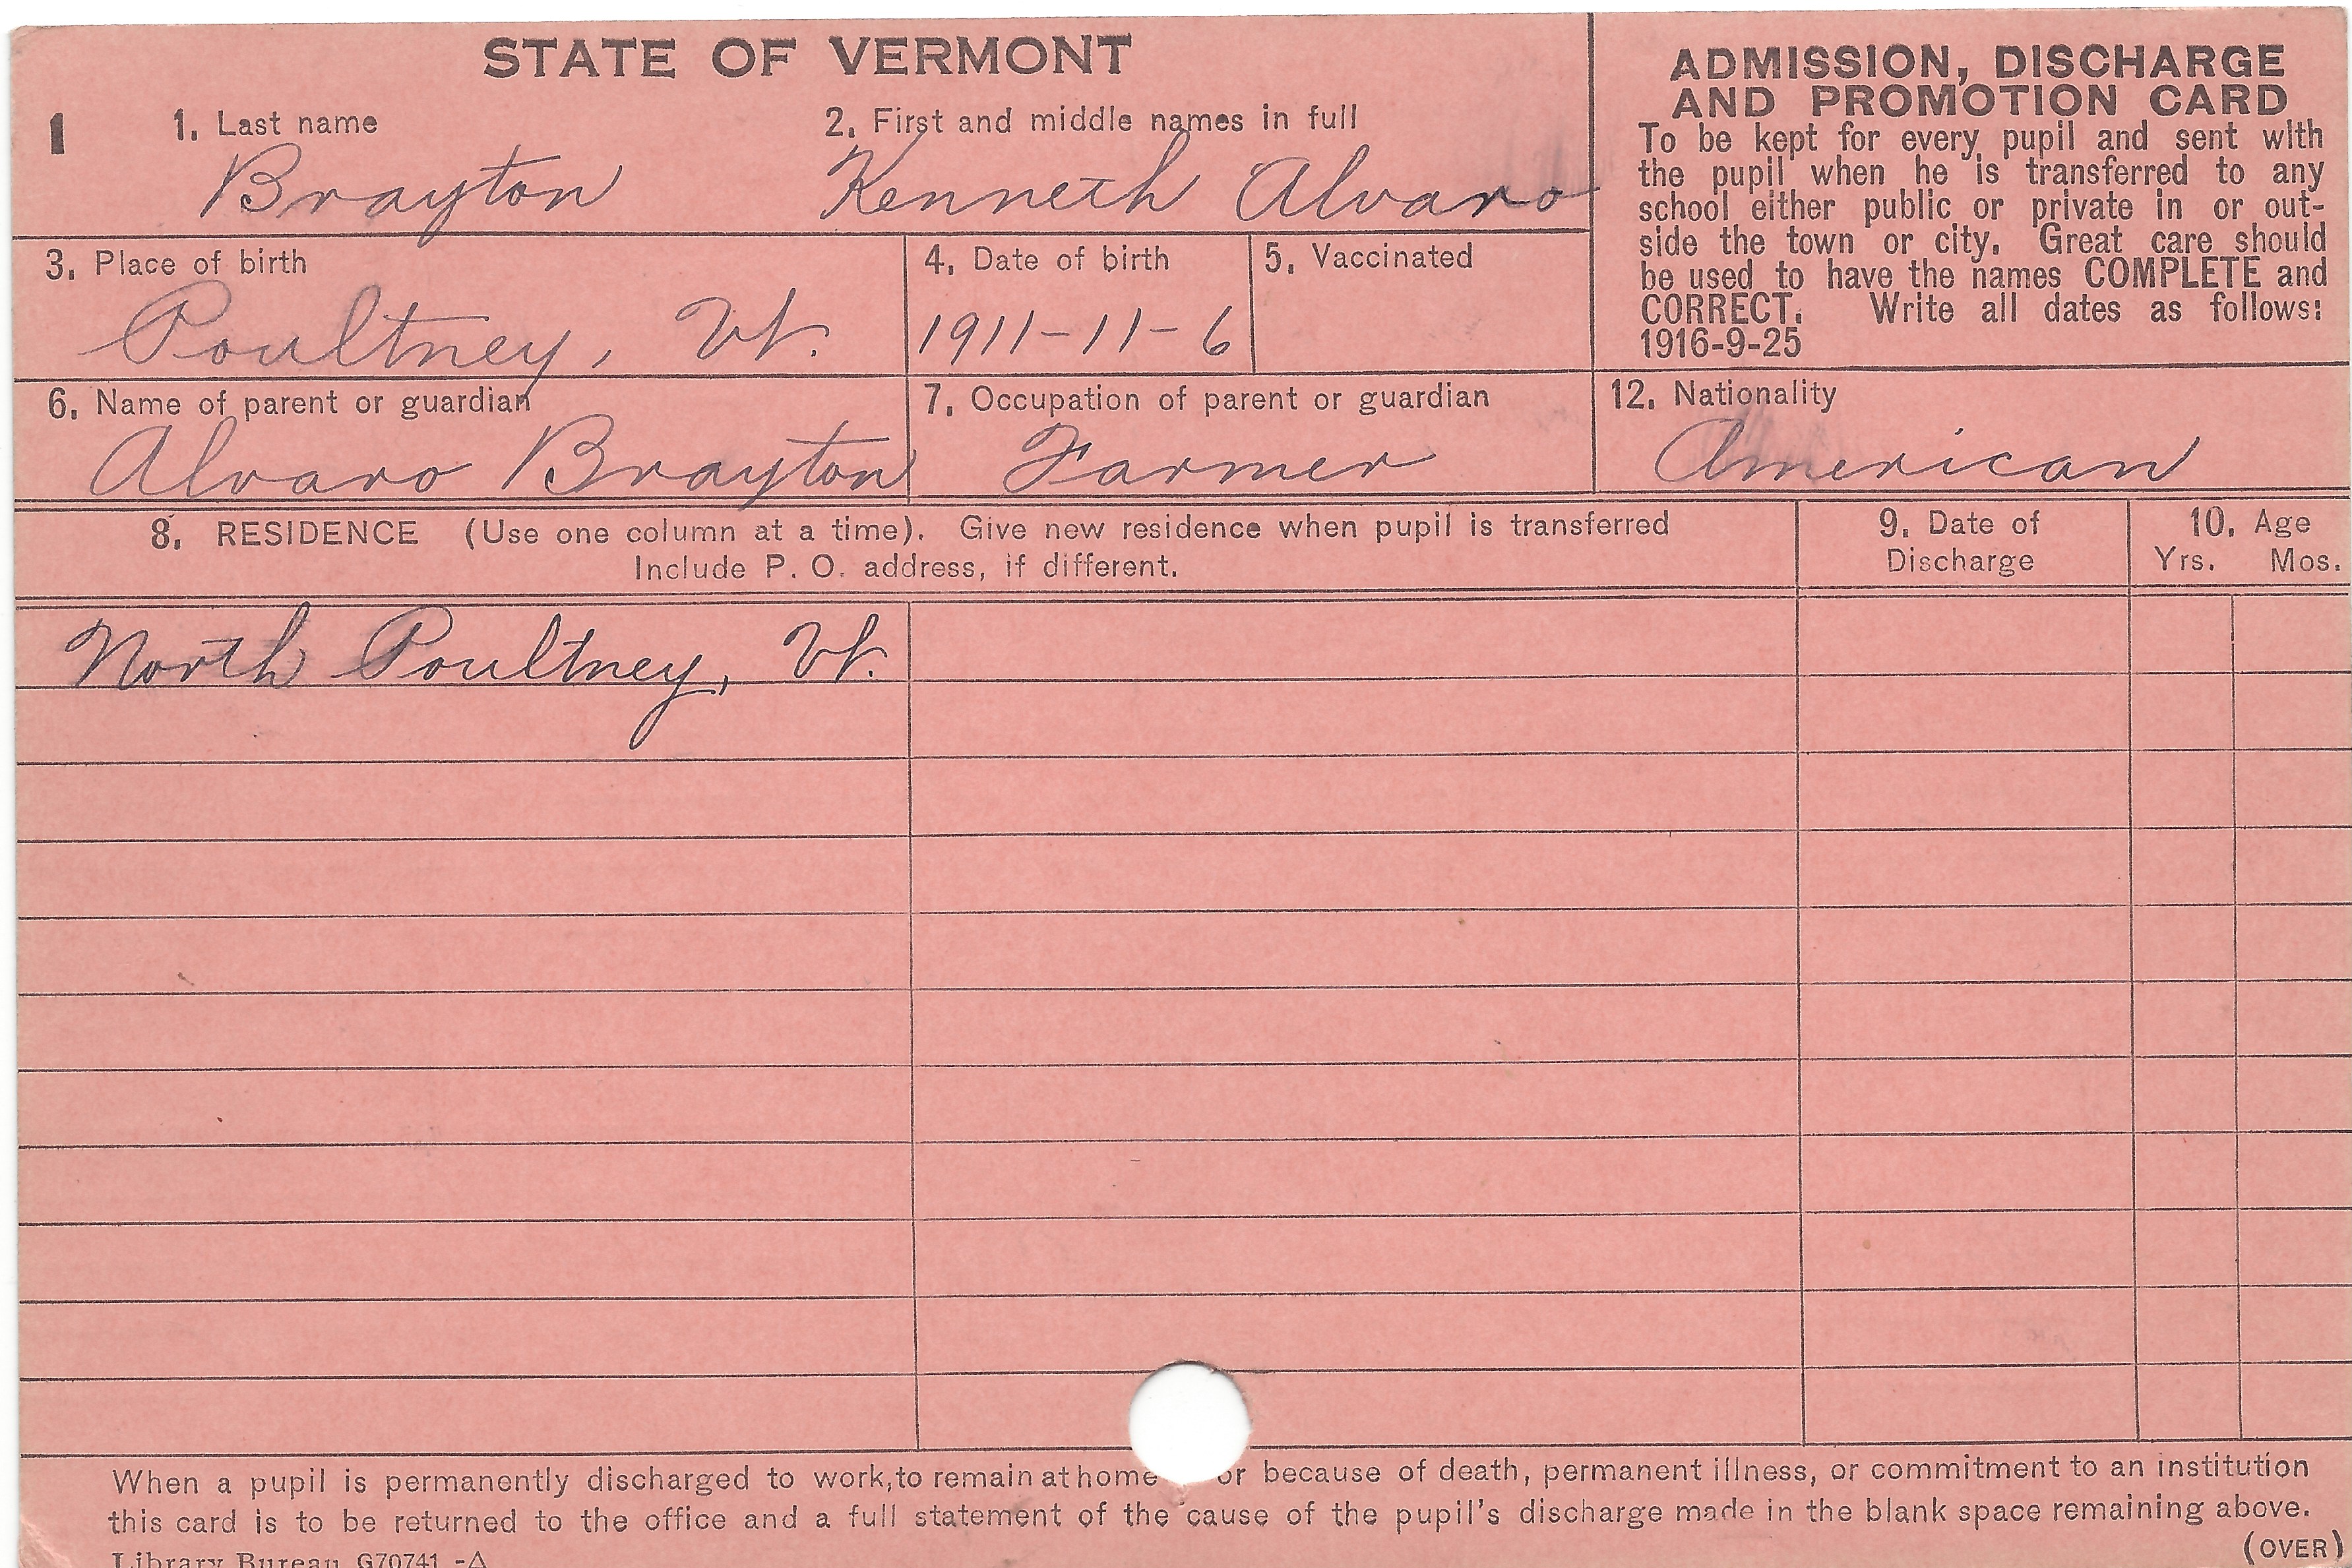 STATE OF VERMONT
ADMISSION, DISCHARGE
AND PROMOTION CARD
To be kept for every pupil and sent with
the pupil when he is transferred to any
school either public or private in or out-
side the town or city. Great care should
be used to have the names COMPLETE and
CORRECT. Write all dates as follows:
1916-9-25
1 1. Last name 2. First and middle names in full
Brayton Kenneth Alvaro
3. Place of birth 4. Date of birth 5. Vaccinated
Poultney, Vt. 1911-11-6
6. Name of parent or guardian 7. Occupation of parent or guardian 12. Nationality
Alvaro Brayton Farmer American
8. RESIDENCE (Use one column at a time). Give new residence when pupil is transferred
Include P. O. address, if different.
9. Date of
Discharge
10. Age
Yrs. Mos.
North Poultney, Vt.
When a pupil is permanently discharged to work, to remain at home or because of death, permanent illness, or commitment to an institution
this card is to be returned to the office and a full statement of the cause of the pupil's discharge made in the blank space remaining above.
(OVER)
Library Bureau G70741 -A